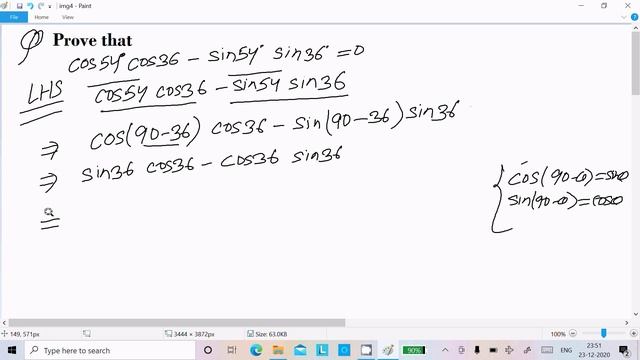 img4 - Paint
File
Home
View
Prove that
cos54° cos36 - sin54° sin36° = 0
LHS cos54 cos36 - sin54 sin36
⇒ cos(90-36) cos36 - sin(90-36) sin36
⇒ sin36 cos36 - cos36 sin36
{ cos(90-θ)=sinθ
sin(90-θ)=cosθ
149, 571px
3444 × 3872px
Size: 63.0KB
100%
Type here to search
90%
ENG
23:51
23-12-2020